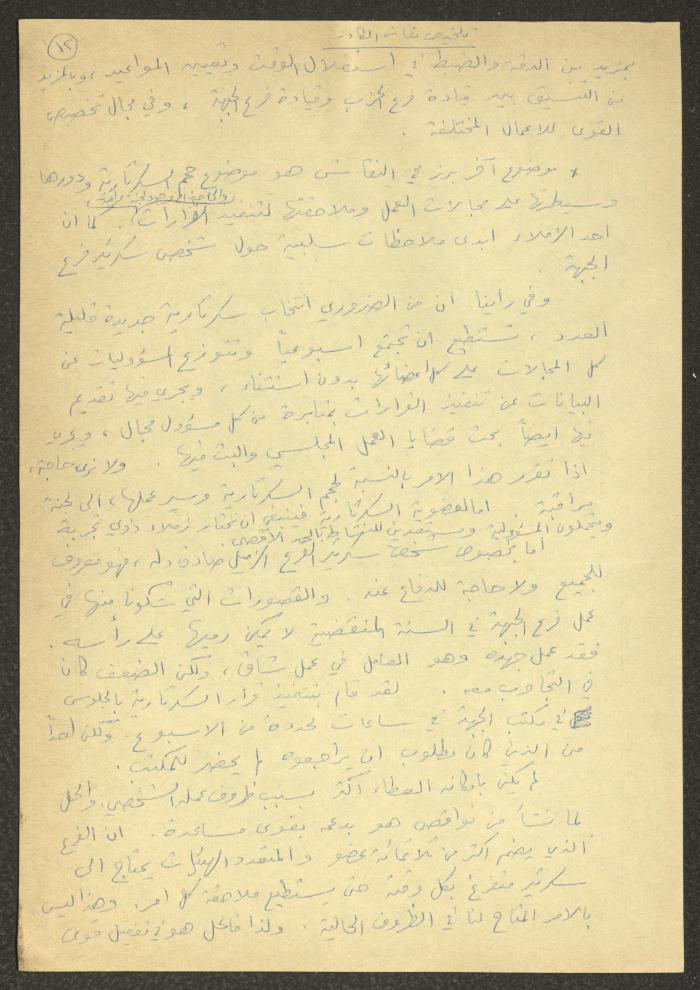 ١٢
تلخيص نقاش الكادر
بمزيد من الدقة والضبط في استغلال الوقت وتعيين المواعيد، وبالمزيد
من التنسيق بين قيادة فرع الحزب وقيادة فرع الجبهة، وفي مجال تخصيص
القوى للاعمال المختلفة.
* موضوع آخر برز في النقاش هو موضوع حجم السكرتارية ودورها
وسيطرتها على مجالات العمل وملاحقتها لتنفيذ القرارات. كما ان
احد الزملاء ابدى ملاحظات سلبية حول شخص سكرتير فرع
الجبهة.
وفي رأينا ان من الضروري انتخاب سكرتارية جديدة قليلة
العدد، تستطيع ان تجتمع اسبوعياً وتتوزع المسؤوليات عن
كل المجالات على كل اعضائها بدون استثناء، ويجري فيها تقديم
البيانات عن تنفيذ القرارات بمثابرة من كل مسؤول مجال، ويجري
فيها ايضاً بحث قضايا العمل المجلسي والبت فيها. ولا نرى حاجة،
اذا تقرر هذا الامر بالنسبة لحجم السكرتارية وسير عملها، الى لجنة
مراقبة. اما لعضوية السكرتارية فينبغي ان نختار زملاء ذوي تجربة
ويتحملون المسؤولية ومستعدين للنشاط بالحد الاقصى.
اما بخصوص شخص سكرتير الفرع الزميل صادق دله، فهو معروف
للجميع ولا حاجة للدفاع عنه. والقصورات التي شكونا منها في
عمل فرع الجبهة في السنة المنقضية لا يمكن رميها على رأسه.
فقد عمل جهده وهو العامل في عمل شاق، ولكن الضعف كان
في التجاوب معه. لقد قام بتنفيذ قرار السكرتارية بالجلوس
في مكتب الجبهة في ساعات محددة من الاسبوع. ولكن احداً
من الذين كان مطلوب ان يراجعوه لم يحضر للمكتب.
لم يكن بامكانه العطاء اكثر بسبب ظروف عمله الشخصي. والحل
لما نشأ من نواقص هو بدعمه بقوى مساعدة. ان الفرع
الذي يضم اكثر من ثلاثمائة عضو والمتعدد الهيئات يحتاج الى
سكرتير متفرغ بكل وقته حتى يستطيع ملاحقة كل امر. وهذا ليس
بالامر المتاح لنا في الظروف الحالية. ولذا فالحل هو في تفعيل قوى